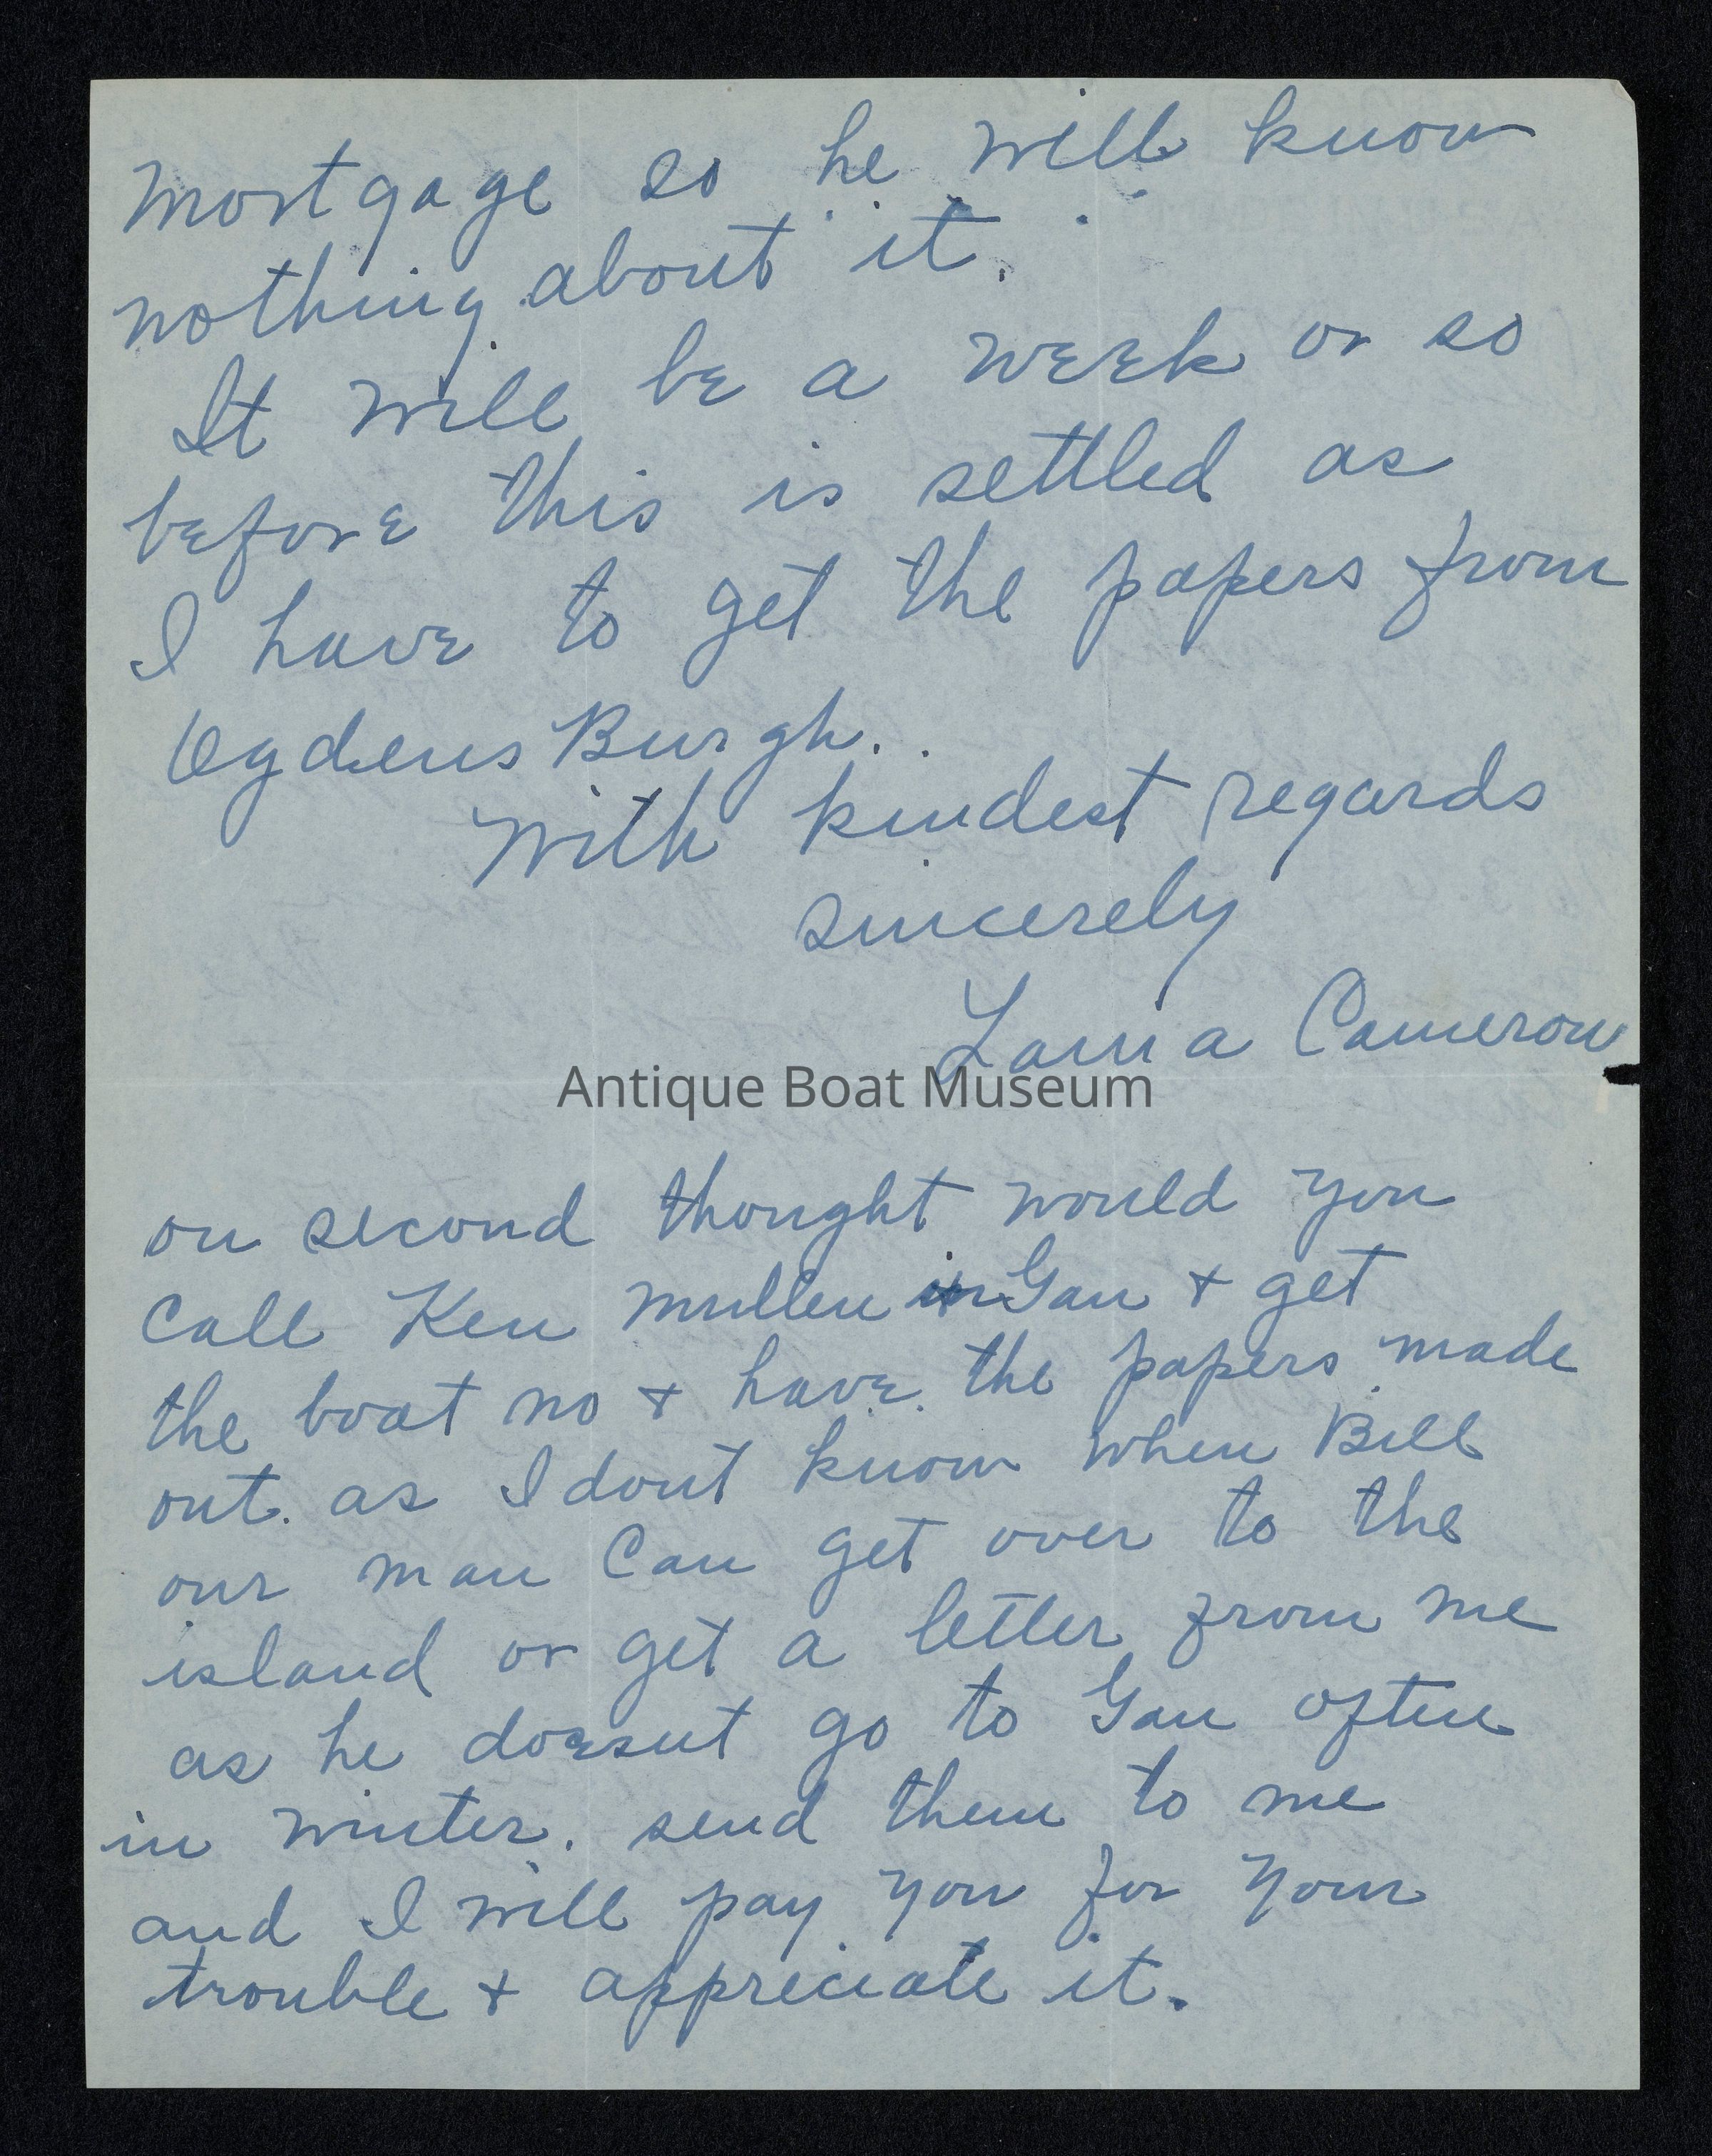 mortgage so he will know
nothing about it.
It will be a week or so
before this is settled as
I have to get the papers from
OgdensBurgh.
With kindest regards
sincerely
Cameron
Antique Boat Museum
on second thought would you
call Ken Mullen in Gan + get
the boat no + have the papers made
out. as I dont know when Bill
our man can get over to the
island or get a letter from me
as he doesnt go to Gan often
in winter. send them to me
and I will pay you for your
trouble + appreciate it.